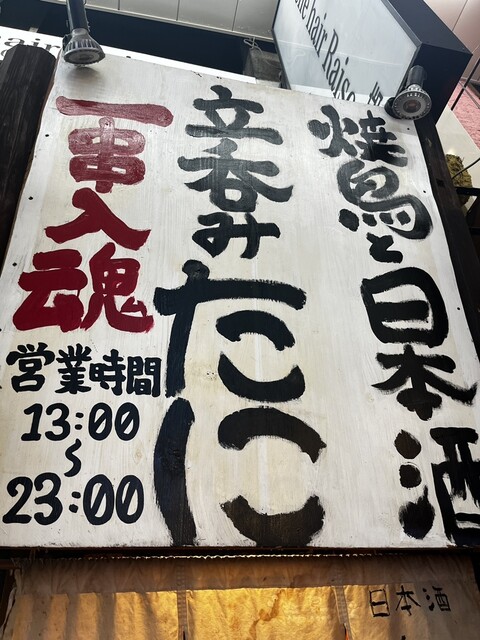 焼鳥と日本酒
立呑み
たに
一串入魂
営業時間
13:00
〜
23:00
the hair Raiso
日本酒